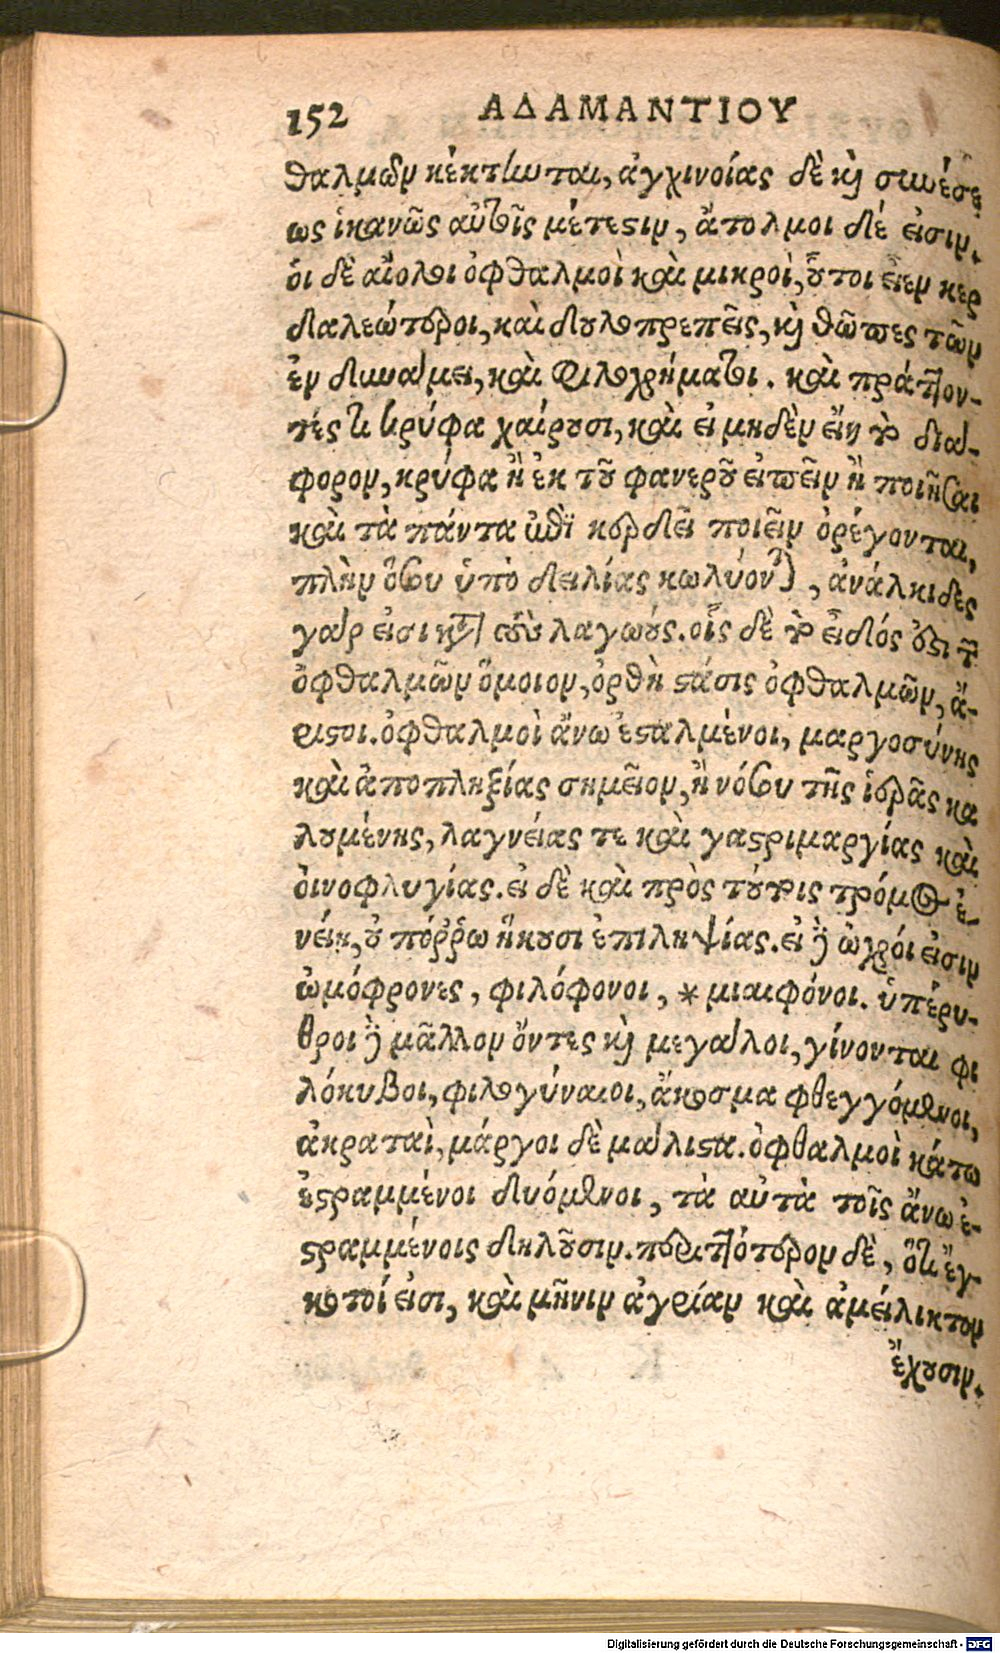 152 ΑΔΑΜΑΝΤΙΟΥ
θαλμῶν κέκτωνται, ἀγχινοίας δὲ καὶ συνέσε
ως ἱκανῶς αὐτοῖς μέτεστιν, ἄτολμοι δέ εἰσιν.
οἱ δὲ αἴολοι ὀφθαλμοὶ καὶ μικροὶ, οὗτοι εἶεν κερ
διαλεώτεροι, καὶ δουλοπρεπεῖς, καὶ θῶπες τῶν
ἐν δυνάμει, καὶ φιλοχρήματοι. καὶ πράττον-
τές τι κρύφα χαίρουσι, καὶ εἰ μηδὲν εἴη τὸ διά-
φορον, κρύφα ἢ ἐκ τοῦ φανεροῦ εἰπεῖν ἢ ποιῆσαι
καὶ τὰ πάντα ἐπὶ κέρδει ποιεῖν ὀρέγονται,
πλὴν ὅσου ὑπὸ δειλίας κωλύονται, ἀνάλκιδες
γάρ εἰσι κατὰ τοὺς λαγωούς. οἷς δὲ τὸ εἶδός ἐστι τῶν
ὀφθαλμῶν ὅμοιον, ὀρθὴ στάσις ὀφθαλμῶν, ἄ-
ριστοι. ὀφθαλμοὶ ἄνω ἐσταλμένοι, μαργοσύνης
καὶ ἀποπληξίας σημεῖον, ἢ νόσου τῆς ἱερᾶς κα
λουμένης, λαγνείας τε καὶ γαστριμαργίας καὶ
οἰνοφλυγίας. εἰ δὲ καὶ πρὸς τούτοις τρόμος ἐ-
νείη, οὐ πόῤῥω ἥκουσι ἐπιληψίας. εἰ δὲ ὠχρόι εἰσιν
ὠμόφρονες, φιλόφονοι, * μιαιφόνοι. ὑπέρυ-
θροι δὲ μᾶλλον ὄντες καὶ μεγάλοι, γίνονται φι
λόκυβοι, φιλογύναιοι, ἄκοσμα φθεγγόμενοι,
ἀκραταὶ, μάργοι δὲ μάλιστα. ὀφθαλμοὶ κάτω
ἐστραμμένοι δυόμενοι, τὰ αὐτὰ τοῖς ἄνω ἐ-
στραμμένοις δηλοῦσιν. περιττότερον δὲ, ὅτι ἔγ-
κοτοί εἰσι, καὶ μῆνιν ἀγρίαν καὶ ἀμείλικτον
ἔχουσιν.
Digitalisierung gefördert durch die Deutsche Forschungsgemeinschaft - DFG